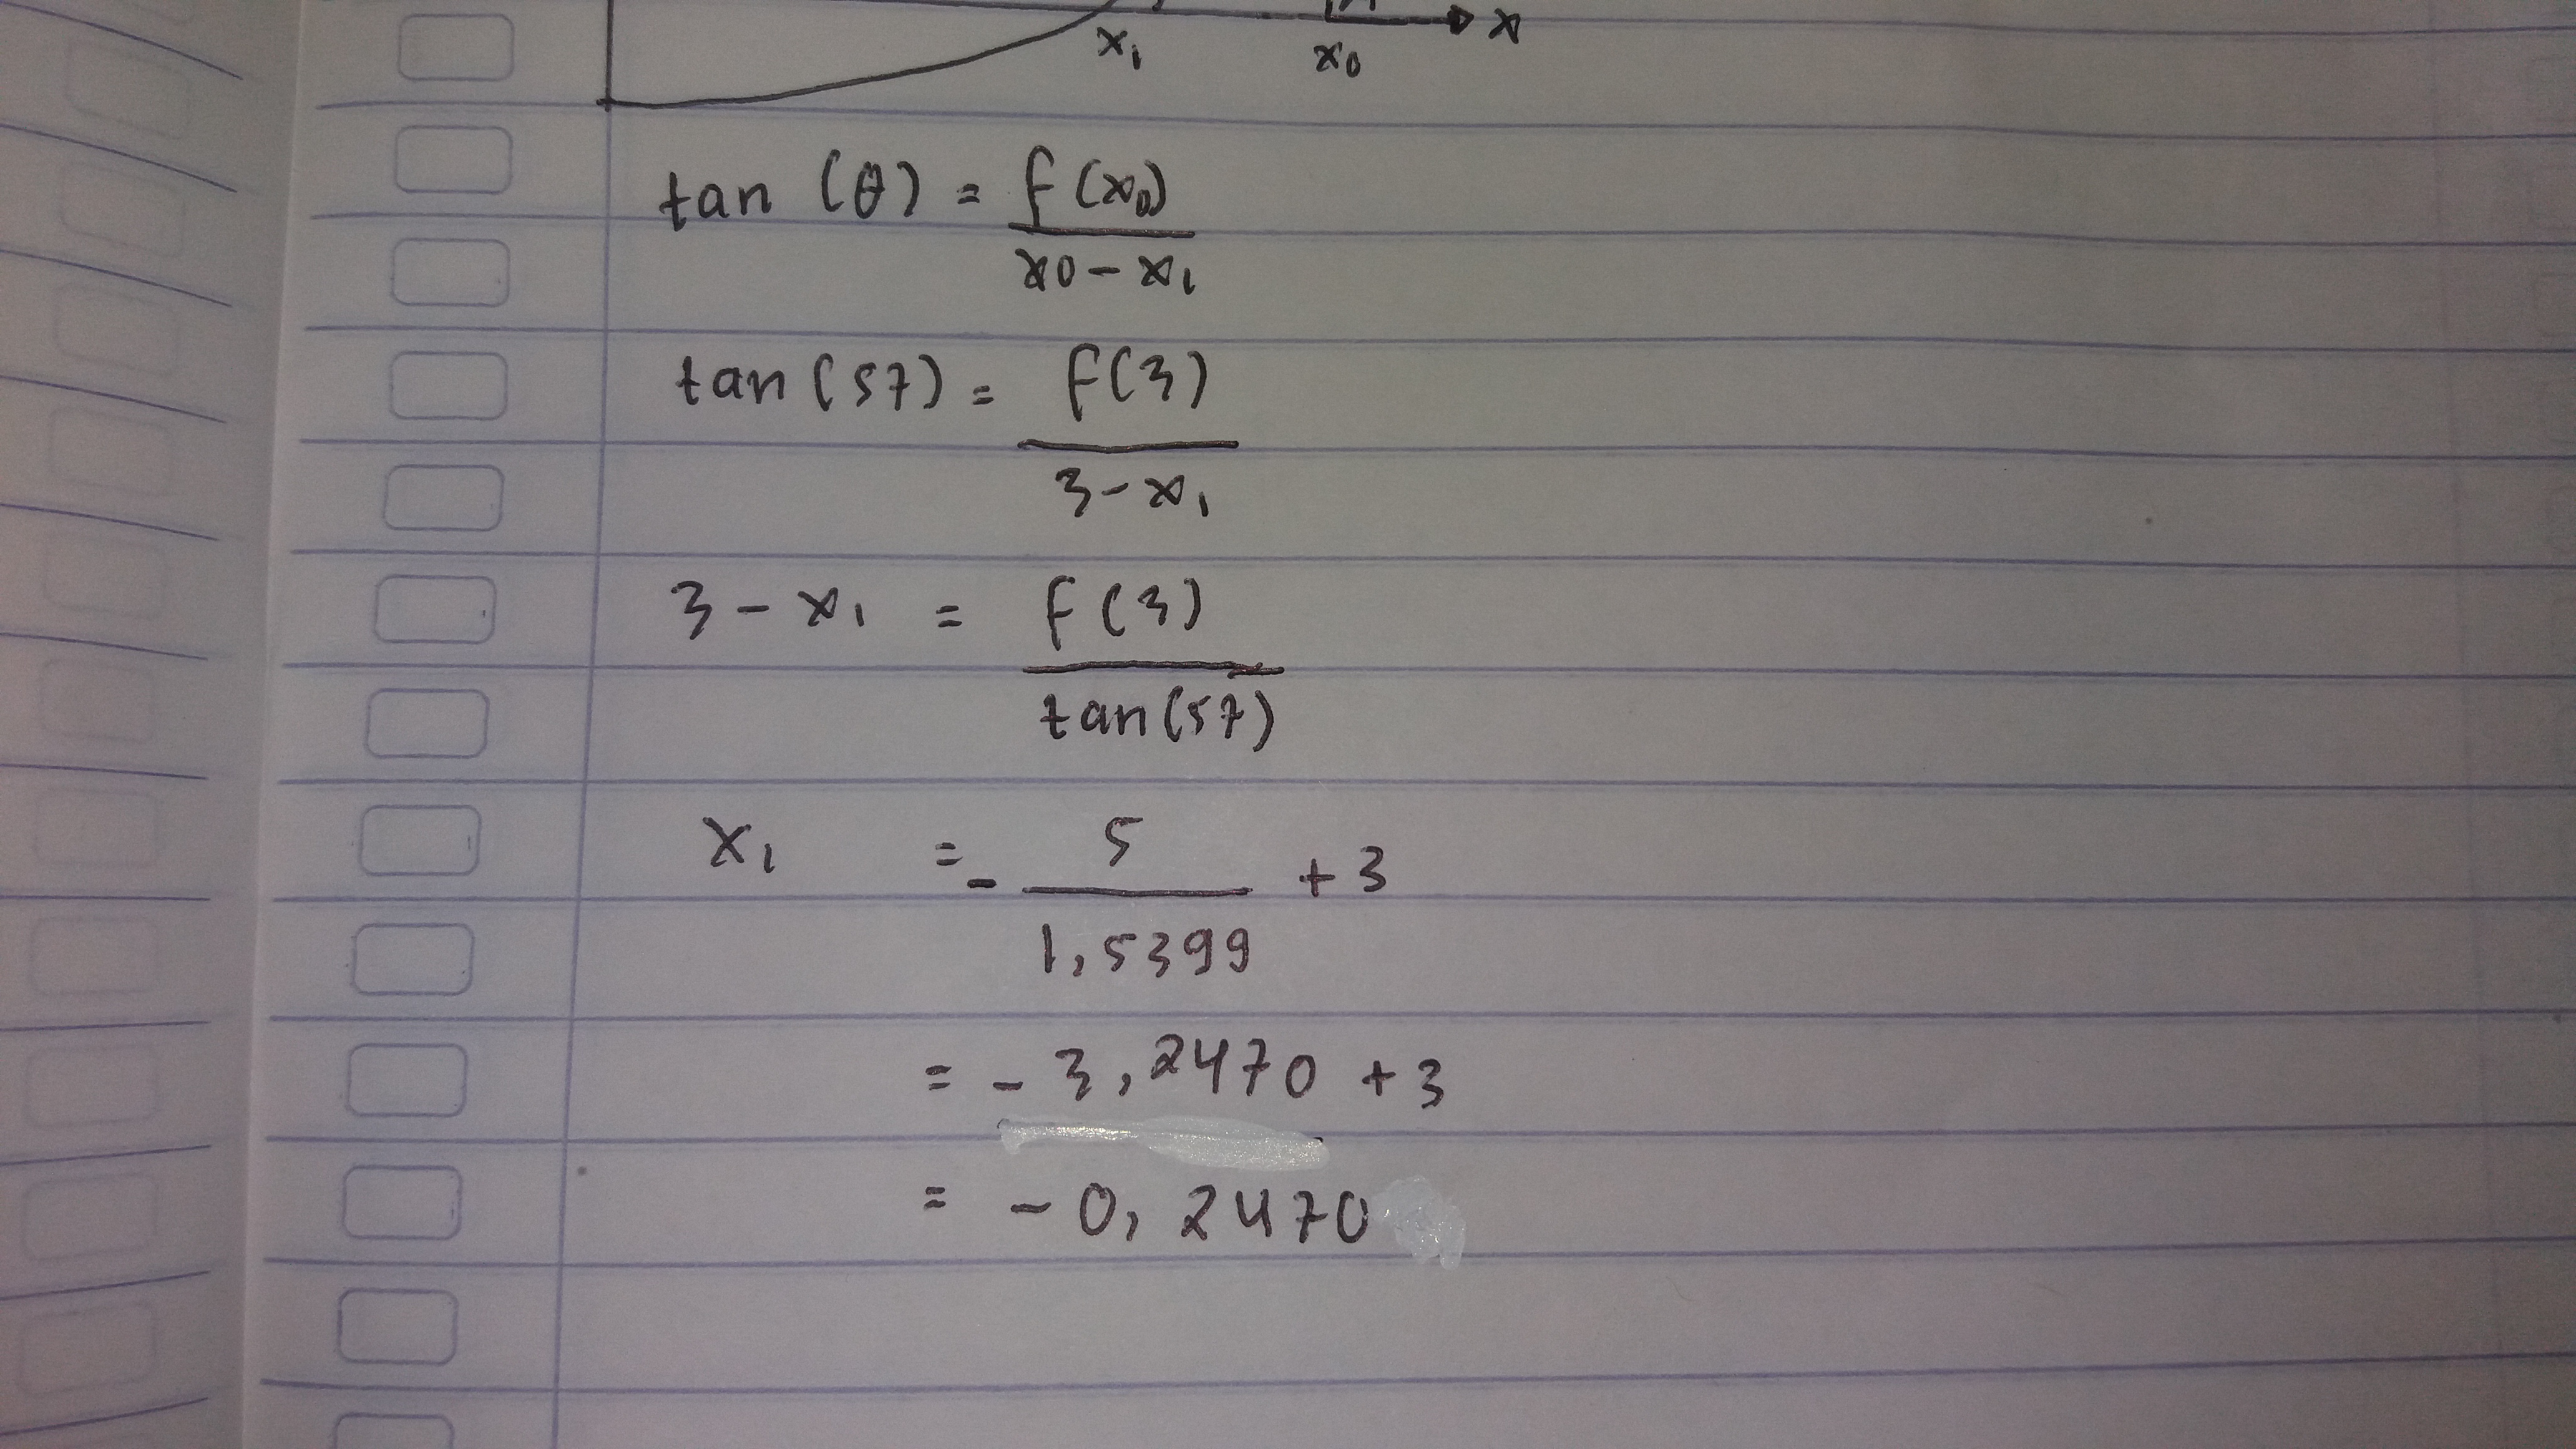 x₁ x₀ x
tan (θ) = f(x₀)
x₀ - x₁
tan (57) = f(3)
3 - x₁
3 - x₁ = f(3)
tan(57)
x₁ = - 5 + 3
1,5399
= - 3,2470 + 3
= - 0,2470